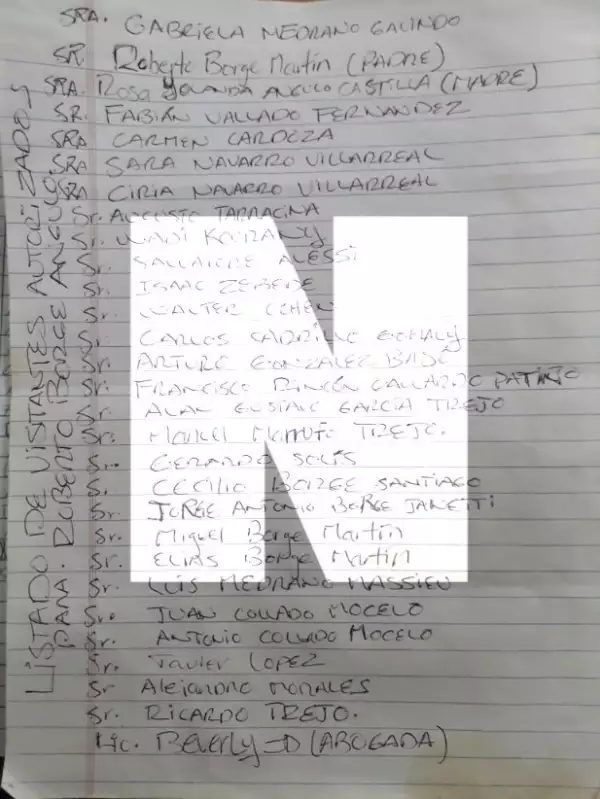 SRA. GABRIELA MEDRANO GALINDO
SR Roberto Borge Martin (PADRE)
SRA. Rosa Yolanda ANGULO CASTILLA (MADRE)
SR. FABIÁN VALLADO FERNANDEZ
SRA CARMEN CARDOZA
SRA SARA NAVARRO VILLARREAL
SRA CIRIA NAVARRO VILLARREAL
Sr. AUGUSTO TARRACINA
Sr. KOURANY
Sr. SALVATORE ALESSI
Sr. ISAAC
Sr. WALTER COHEN
Sr. CARLOS
Sr. ARTURO GONZALEZ
Sr. FRANCISCO RINCÓN GALLARDO PATIÑO
Sr. ALAN GUSTAVO GARCIA TREJO
Sr. Manuel Marrufo TREJO.
Sr. GERARDO SOLÍS
S. CECILIO BORGE SANTIAGO
Sr. JORGE ANTONIO BORGE JANETTI
Sr. Miguel Borge Martín
Sr. ELIAS Borge Martín
Sr. LUIS MEDRANO MASSIEU
Sr. JUAN COLLADO MOCELO
Sr. ANTONIO COLLADO MOCELO
Sr. Javier LOPEZ
Sr Alejandro MORALES
Sr. RICARDO TREJO.
Lic. Beverly-D (ABOGADA)
LISTADO DE VISITANTES AUTORIZADOS
PARA: ROBERTO BORGE ANGULO
N